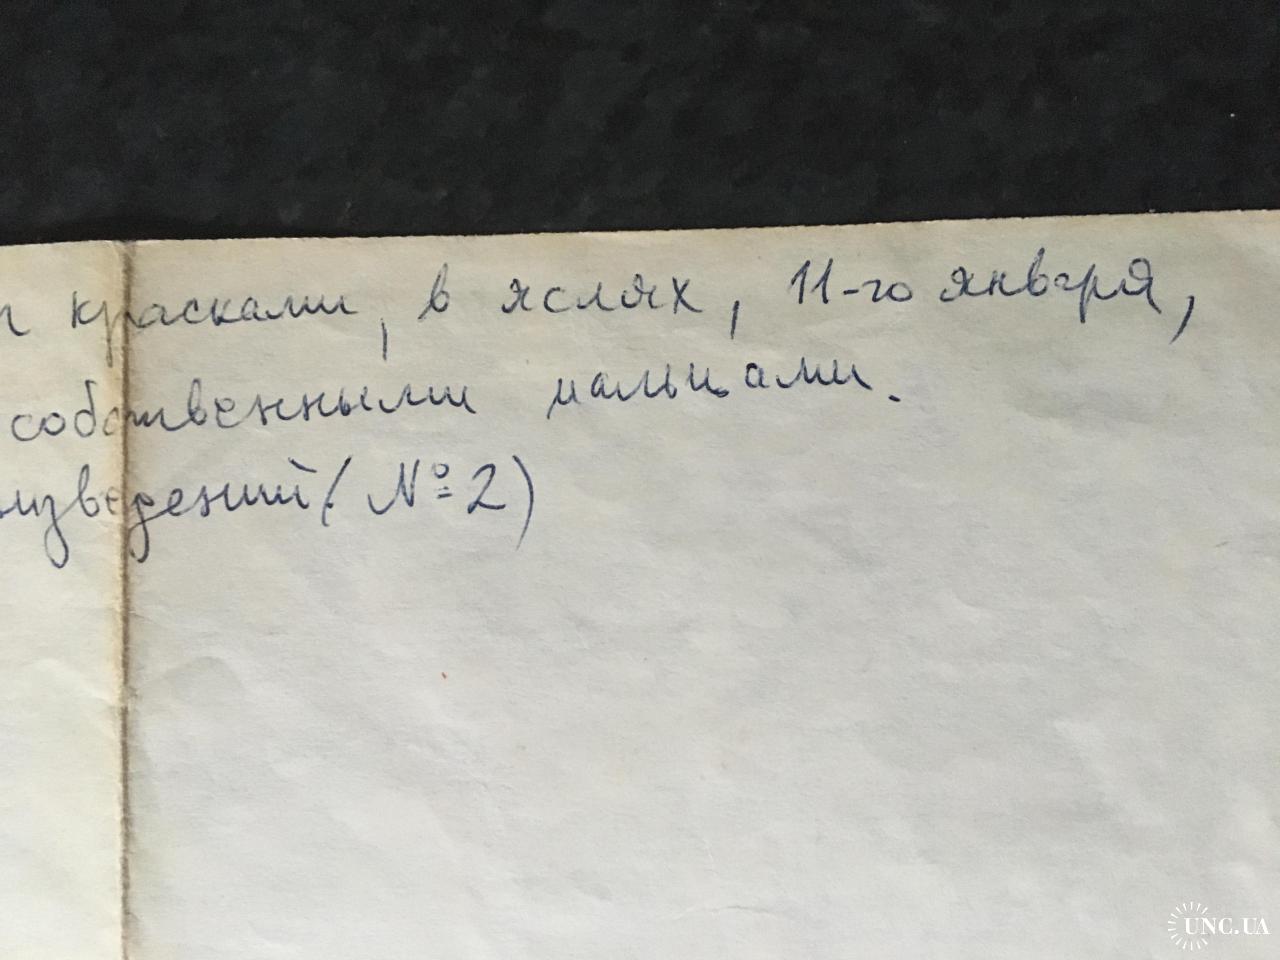 красками, в яслях, 11-го января,
собственными пальцами.
изведений (№2)
UNC.UA